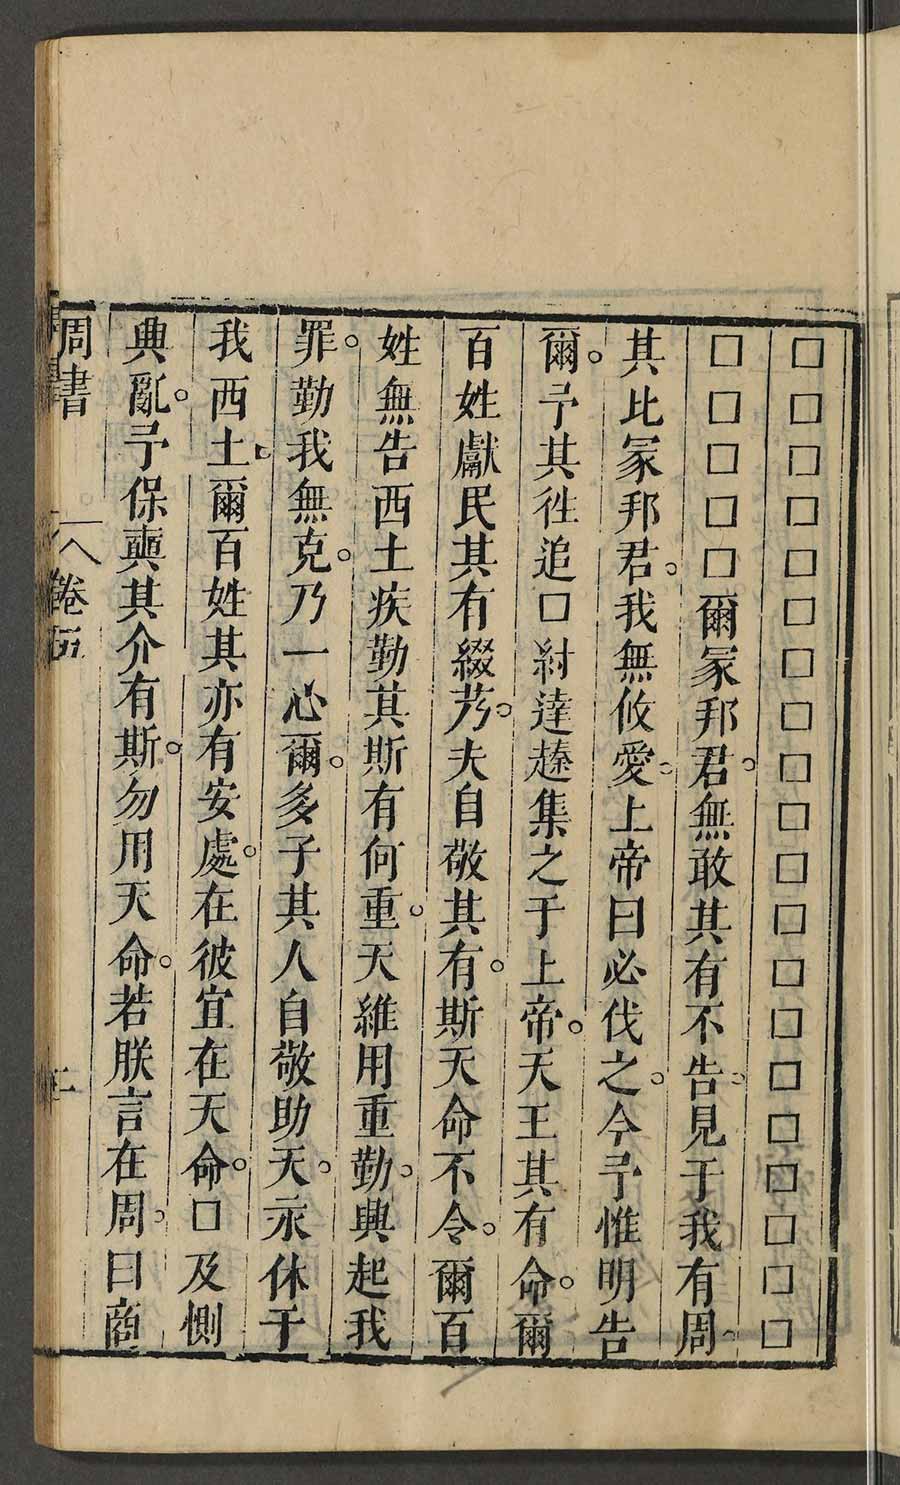 □□□□□□□□□□□□□□□□□□□□
□□□□□爾冢邦君。無敢其有不告。見于我有周。
其比冢邦君。我無攸愛。上帝曰必伐之。今予惟明告
爾。予其徃追□紂達集之于上帝。天王其有命。爾
百姓獻民其有綴艿。夫自敬其有斯天命不令。爾百
姓無告西土疾勤其斯有何重。天維用重勤。興起我
罪。勤我無克。乃一心爾。多子其人自敬助天。永休于
我西土。爾百姓其亦有安處。在彼宜在天命。□及惻
興亂。予保奭其介有斯。勿用天命。若朕言在周。曰商
周書 卷五 二